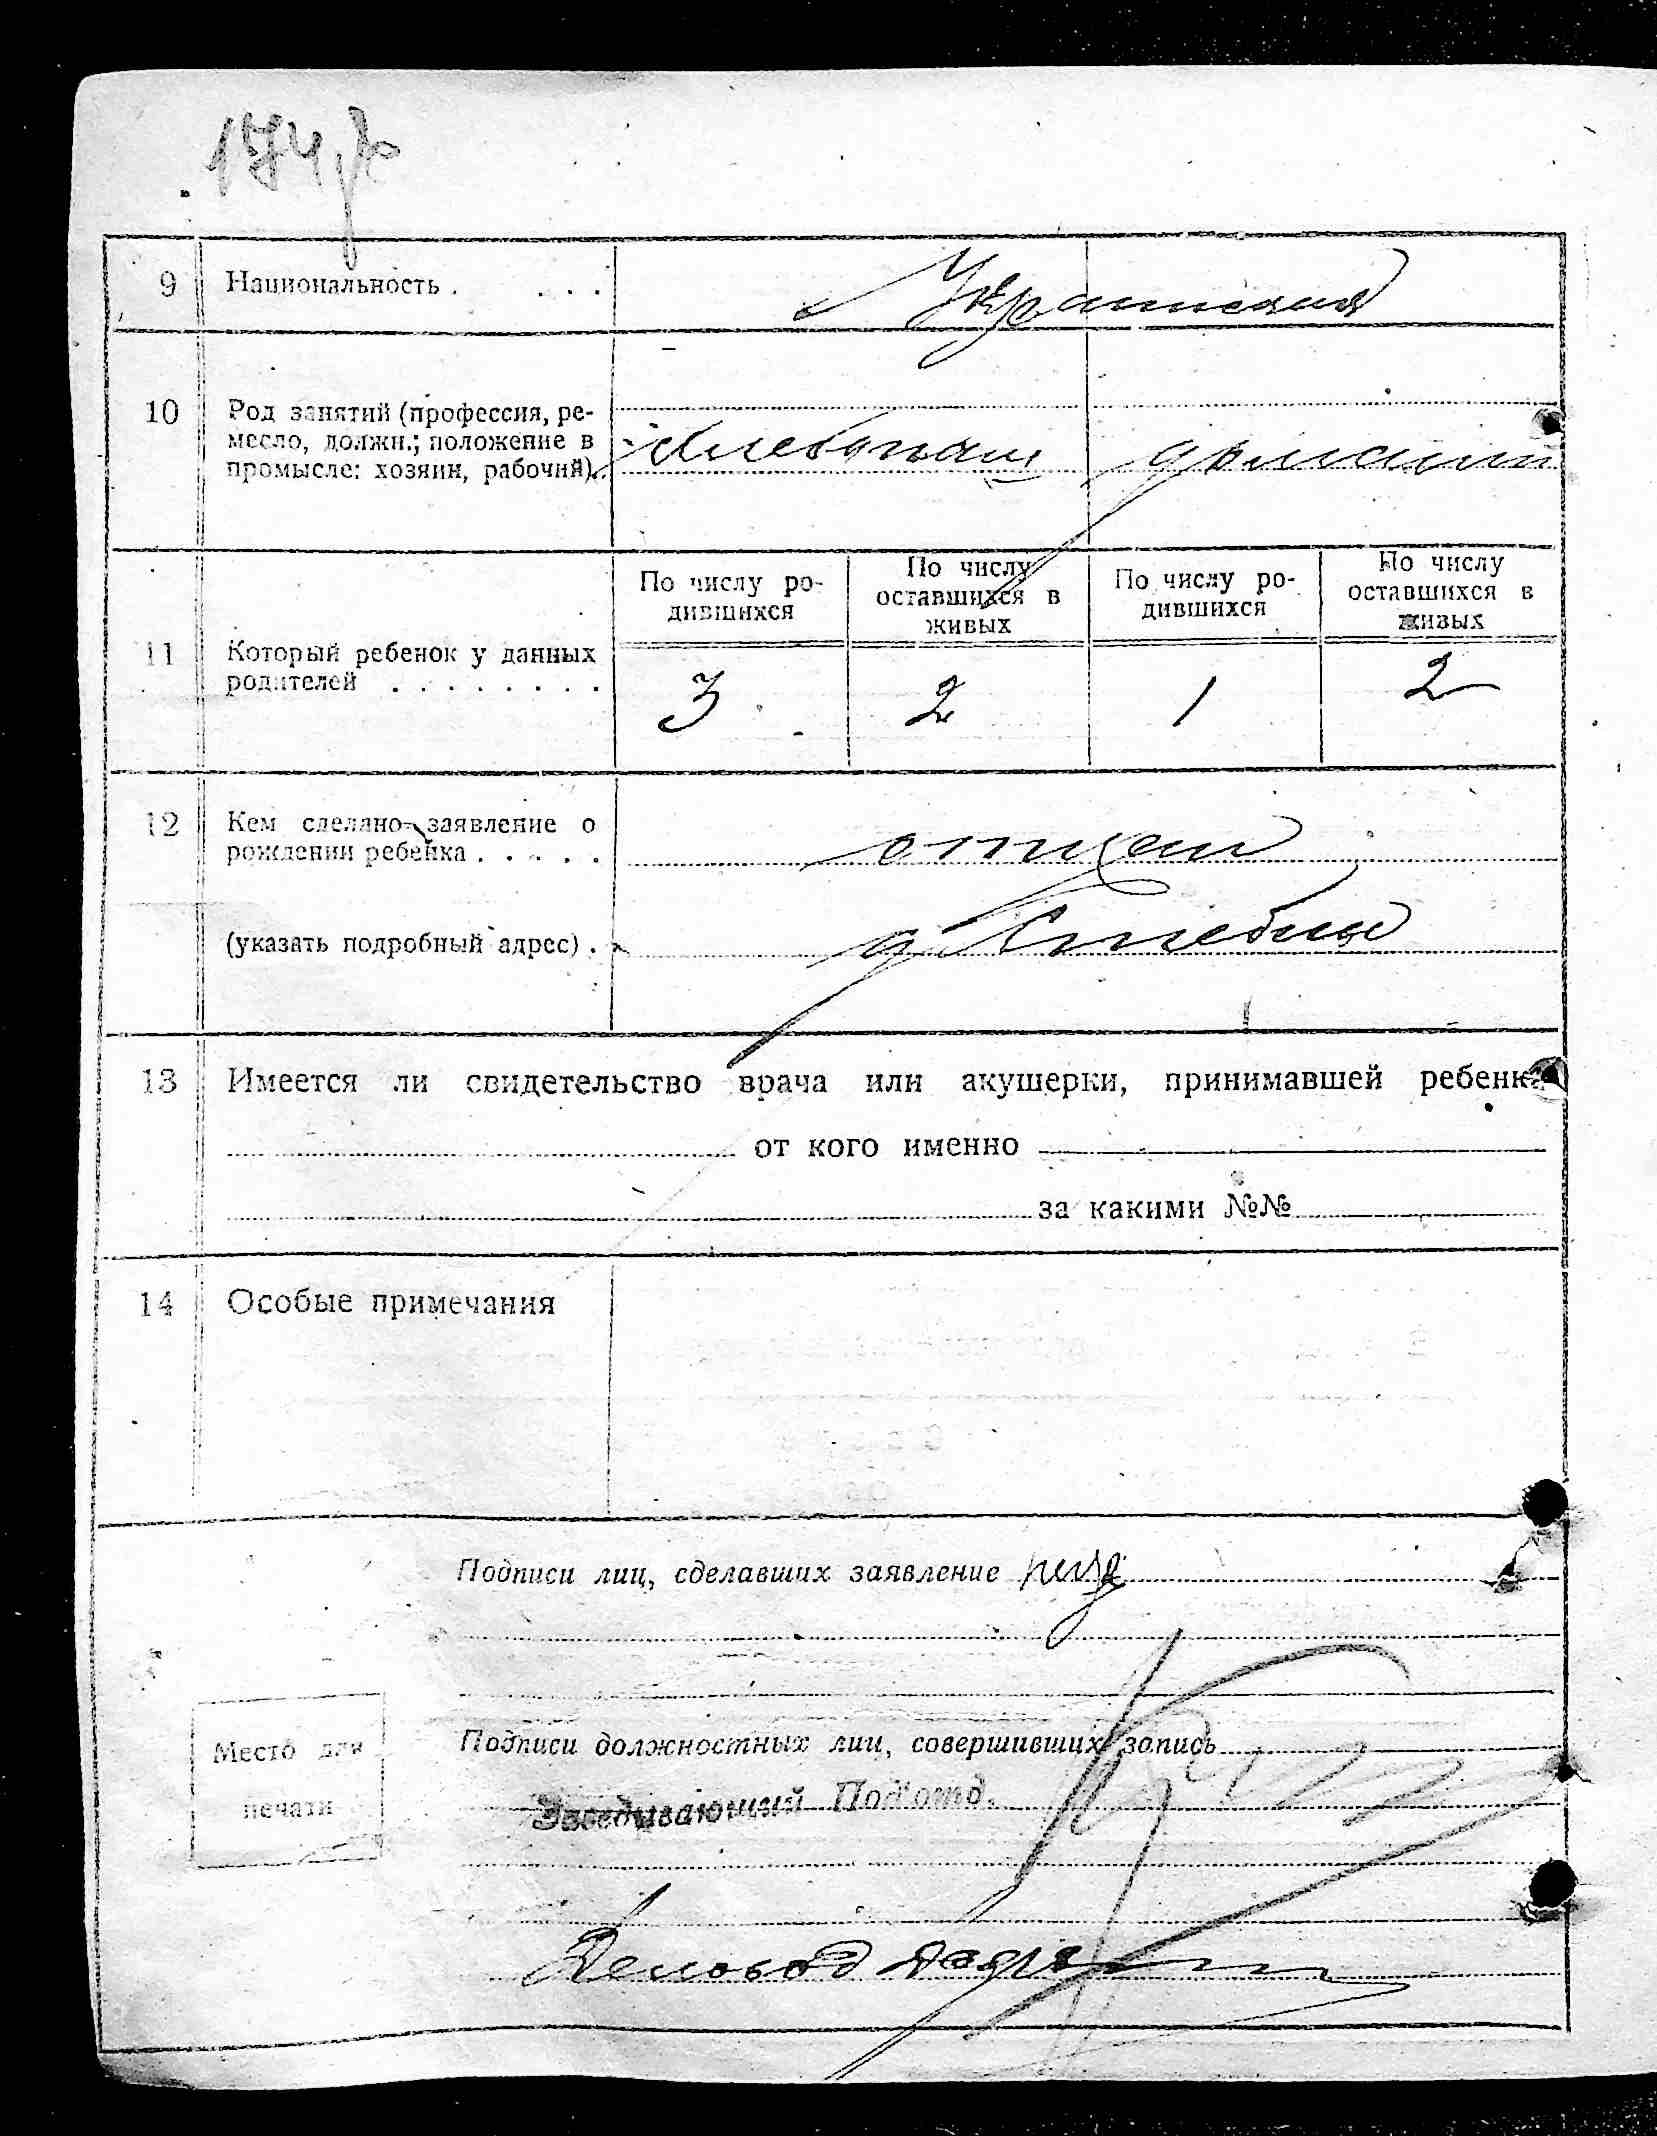 9 Национальность . . . . Украинская
10 Род занятий (профессия, ре-
месло, должн.; положение в
промысле: хозяин, рабочий). Хлебопаш домашн
11 Который ребенок у данных
родителей . . . . . . . .
По числу ро-
дившихся
По числу
оставшихся в
живых
По числу ро-
дившихся
По числу
оставшихся в
живых
3 2 1 2
12 Кем сделано заявление о
рождении ребенка . . . . . отцем
(указать подробный адрес) .
13 Имеется ли свидетельство врача или акушерки, принимавшей ребенка
от кого именно
за какими №№
14 Особые примечания
Подписи лиц, сделавших заявление
Место для
печати
Подписи должностных лиц, совершивших запись
Заведывающий Под'отд.
Деловод